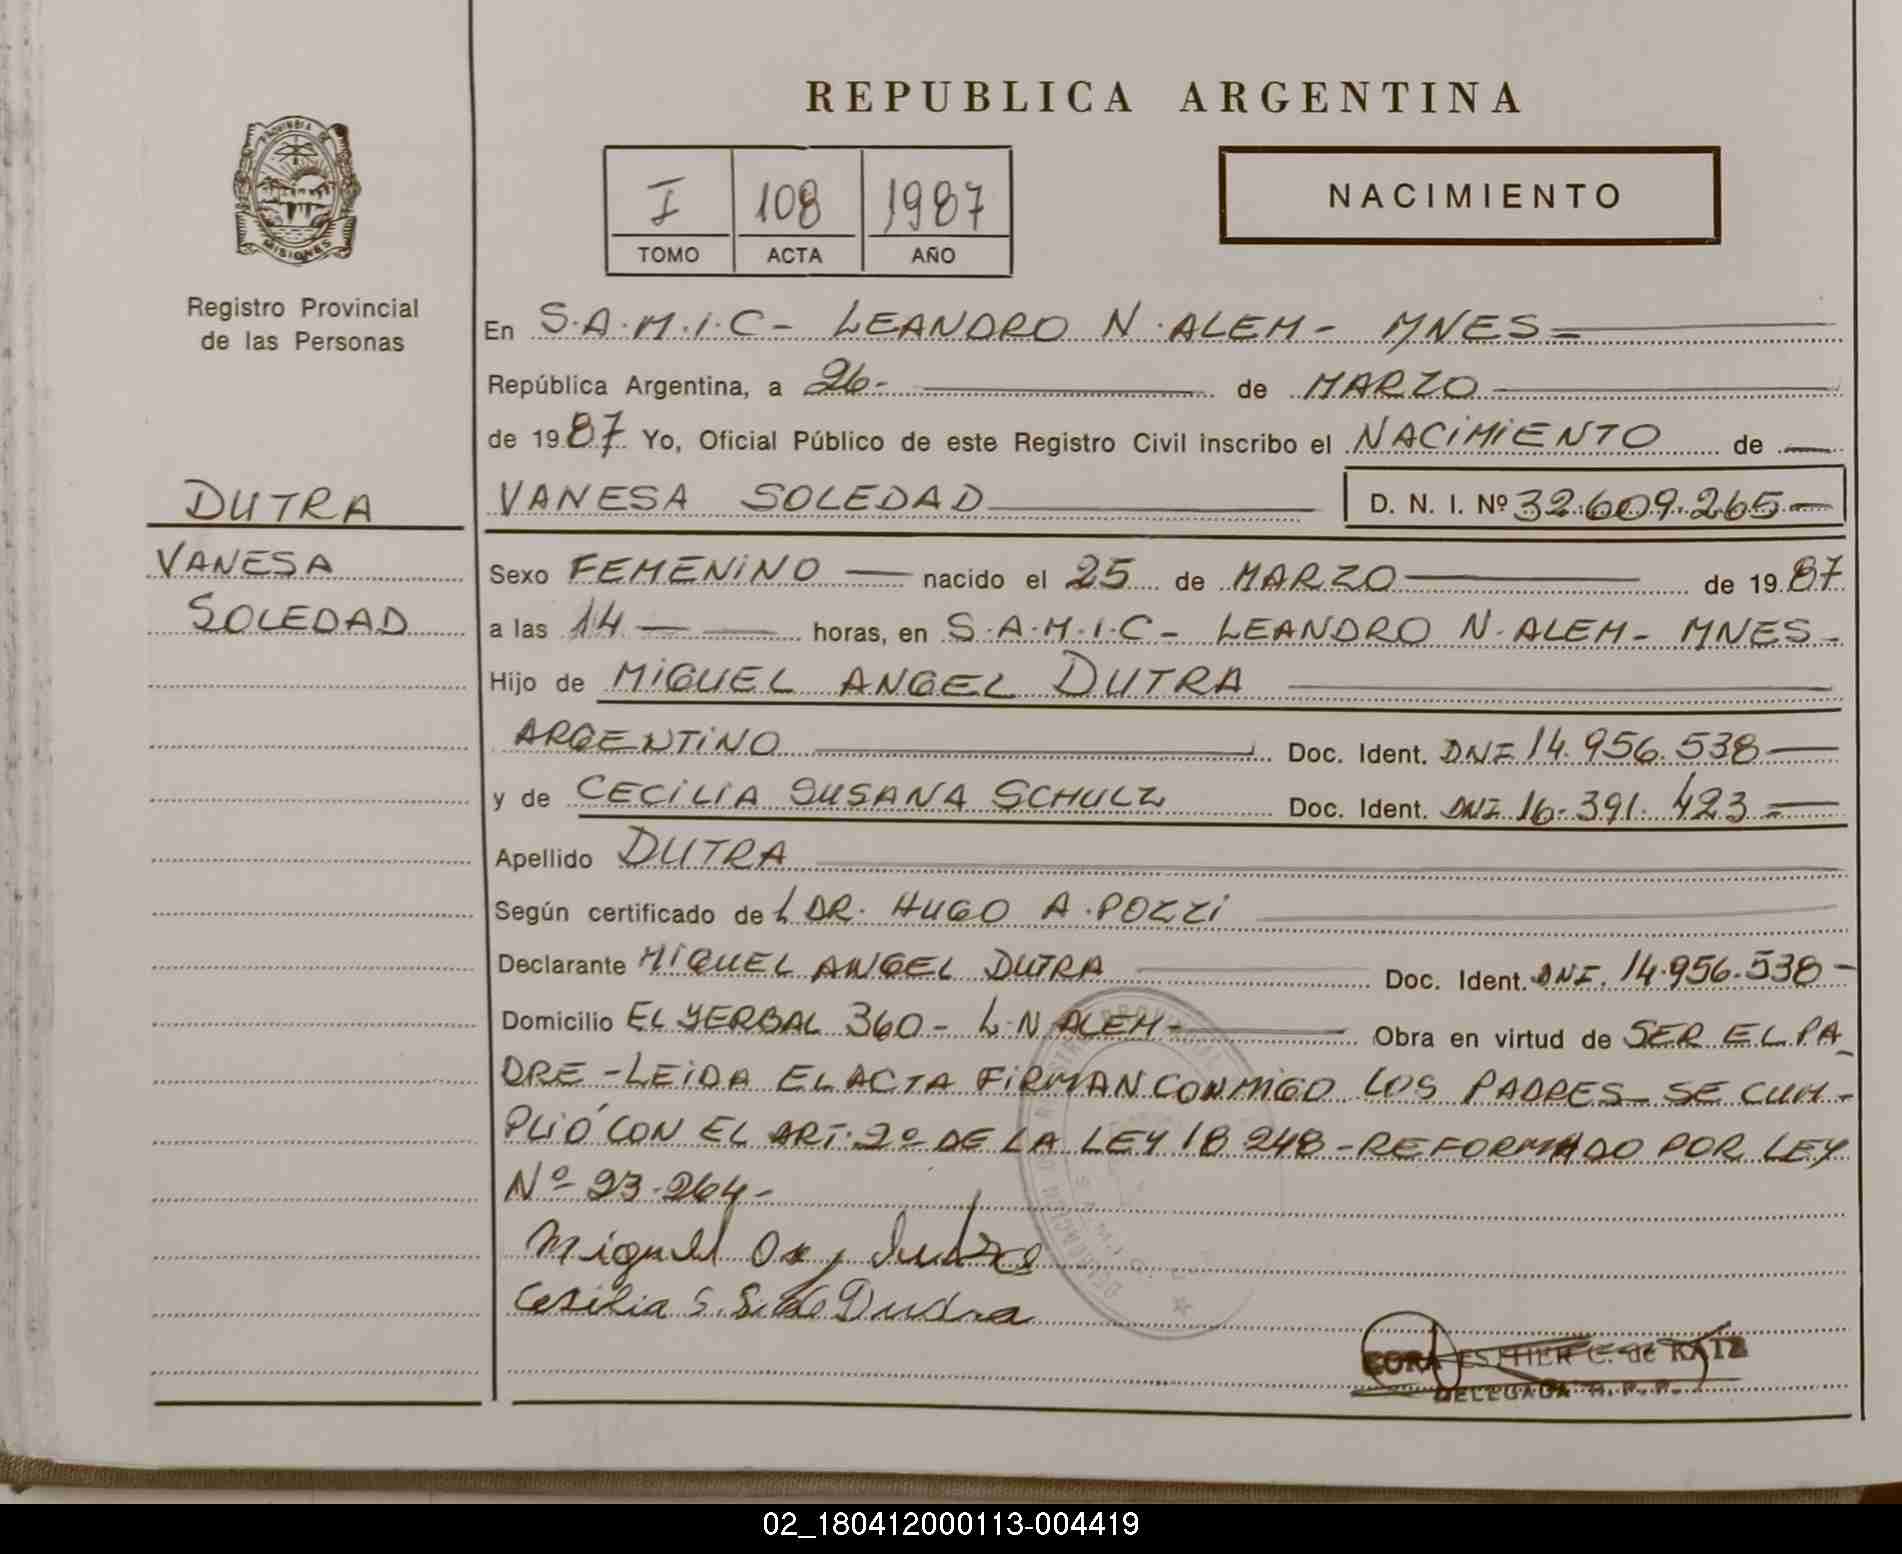 REPUBLICA ARGENTINA
PROVINCIA DE
MISIONES
Registro Provincial
de las Personas
I 108 1987
TOMO ACTA AÑO
NACIMIENTO
En S.A.M.I.C- LEANDRO N.ALEM- MNES=
República Argentina, a 26- de MARZO
de 1987 Yo, Oficial Público de este Registro Civil inscribo el NACIMIENTO de
DUTRA
VANESA
SOLEDAD
VANESA SOLEDAD D. N. I. Nº 32.609.265-
Sexo FEMENINO nacido el 25 de MARZO de 1987
a las 14 horas, en S.A.M.I.C- LEANDRO N.ALEM- MNES-
Hijo de MIGUEL ANGEL DUTRA
ARGENTINO Doc. Ident. DNI 14.956.538
y de CECILIA SUSANA SCHULZ Doc. Ident. DNI 16.391.423=
Apellido DUTRA
Según certificado de L DR. HUGO A.POZZI
Declarante MIGUEL ANGEL DUTRA Doc. Ident. DNI. 14.956.538-
Domicilio EL YERBAL 360- L.N ALEM- Obra en virtud de SER EL PA-
DRE-LEIDA EL ACTA FIRMAN CONMIGO LOS PADRES-SE CUM-
PLIÓ CON EL ART. 2º DE LA LEY 18 248-REFORMADO POR LEY
Nº 23.264-
Miguel
Cesilia S. S. de Dudra
CORA ESTHER C. de KATZ
DELEGADA R. P. P.
S.A.M.I.C.
02_180412000113-004419